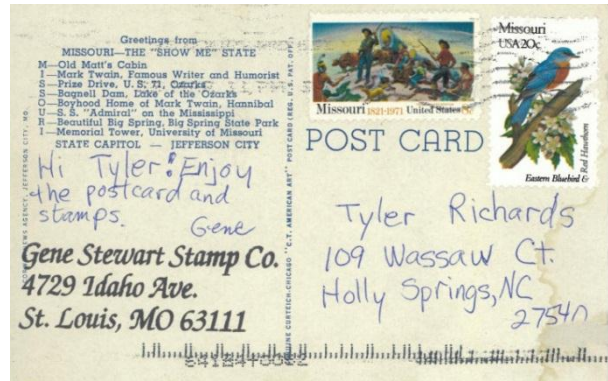 Greetings from
MISSOURI—THE "SHOW ME" STATE
M—Old Matt's Cabin
I—Mark Twain, Famous Writer and Humorist
S—Prize Drive, U. S. 71, Ozarks
S—Bagnell Dam, Lake of the Ozarks
O—Boyhood Home of Mark Twain, Hannibal
U—S. S. "Admiral" on the Mississippi
R—Beautiful Big Spring, Big Spring State Park
I—Memorial Tower, University of Missouri
STATE CAPITOL — JEFFERSON CITY
Hi Tyler! Enjoy
the postcard and
stamps.
Gene
Gene Stewart Stamp Co.
4729 Idaho Ave.
St. Louis, MO 63111
NEWS AGENCY, JEFFERSON CITY, MO.
GENUINE CURTEICH-CHICAGO "C.T. AMERICAN ART" POST CARD (REG. U.S. PAT. OFF.)
Missouri 1821-1971 United States 8c
Missouri
USA 20c
Eastern Bluebird &
Red Hawthorn
POST CARD
Tyler Richards
109 Wassaw Ct.
Holly Springs, NC
27540